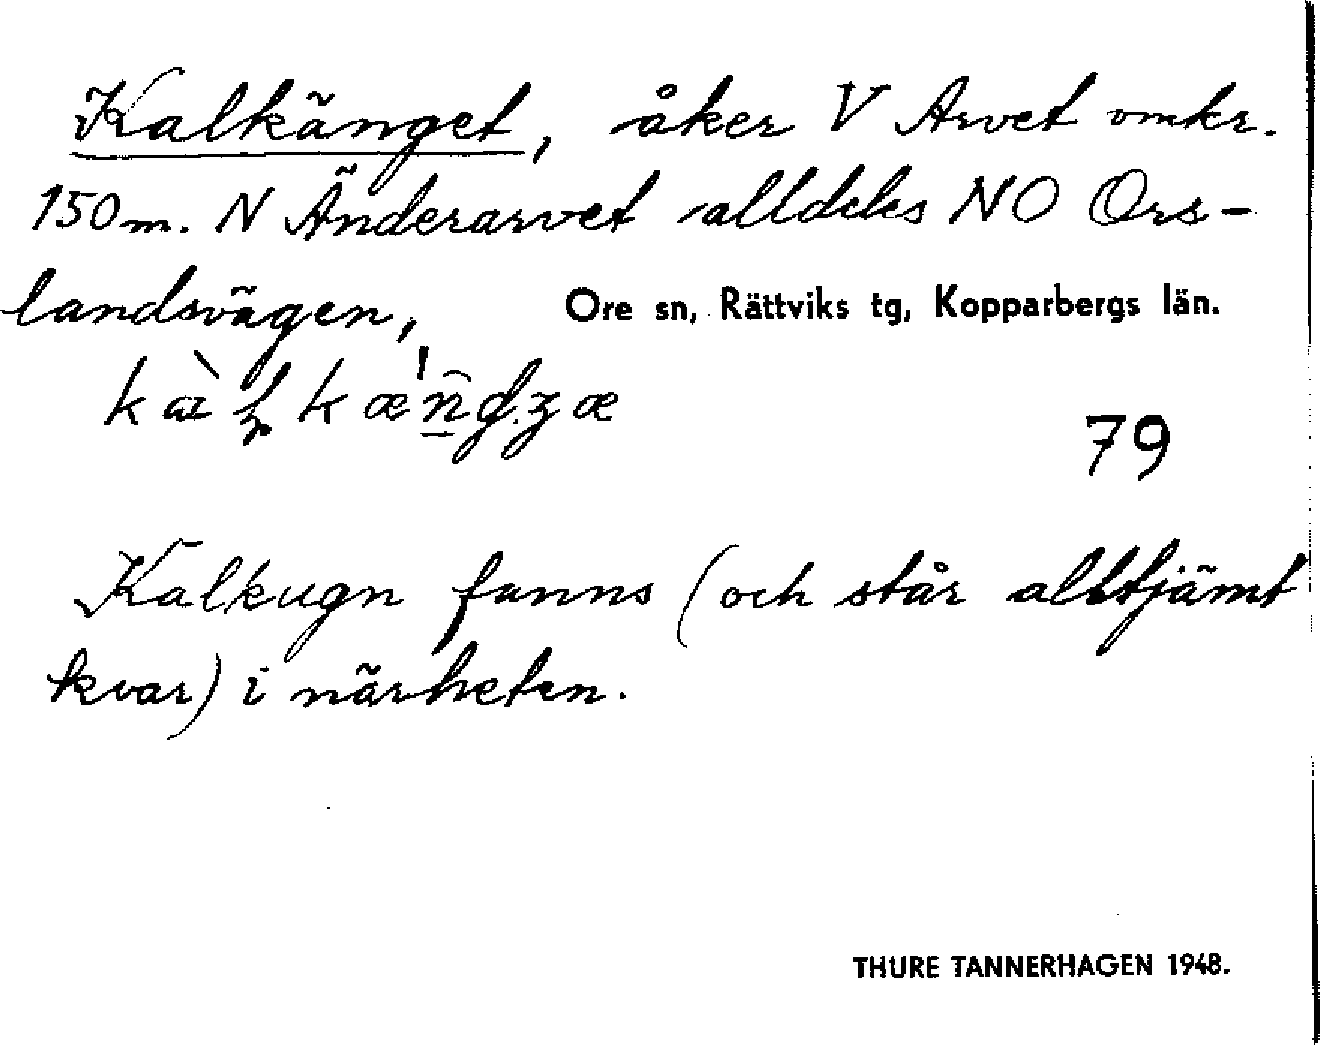 Kalkänget, åker V Arvet omkr.
150 m. N Änderarvet alldeles NO Ors-
landsvägen,
Ore sn, Rättviks tg, Kopparbergs län.
79
Kalkugn fanns (och står alltjämt
kvar) i närheten.
THURE TANNERHAGEN 1948.